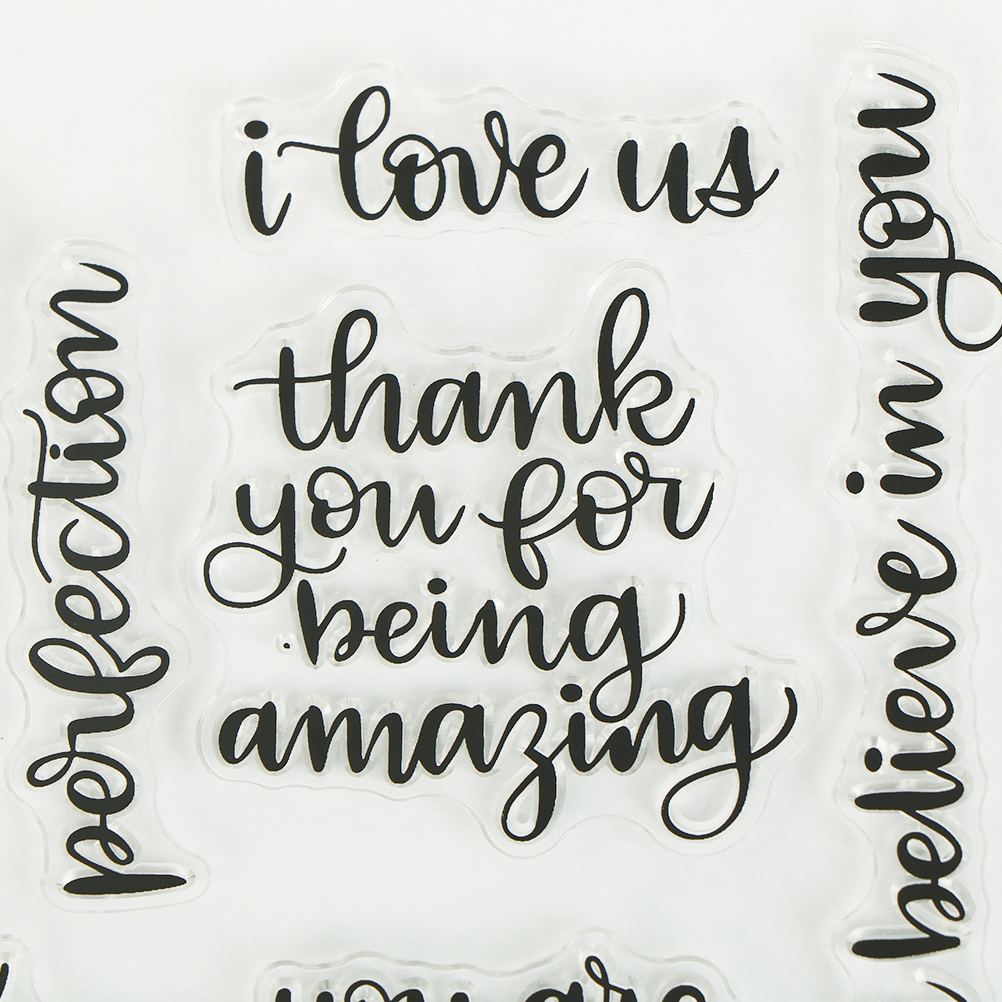 i love us
perfection
thank
you for
being
amazing
believe in you
you are